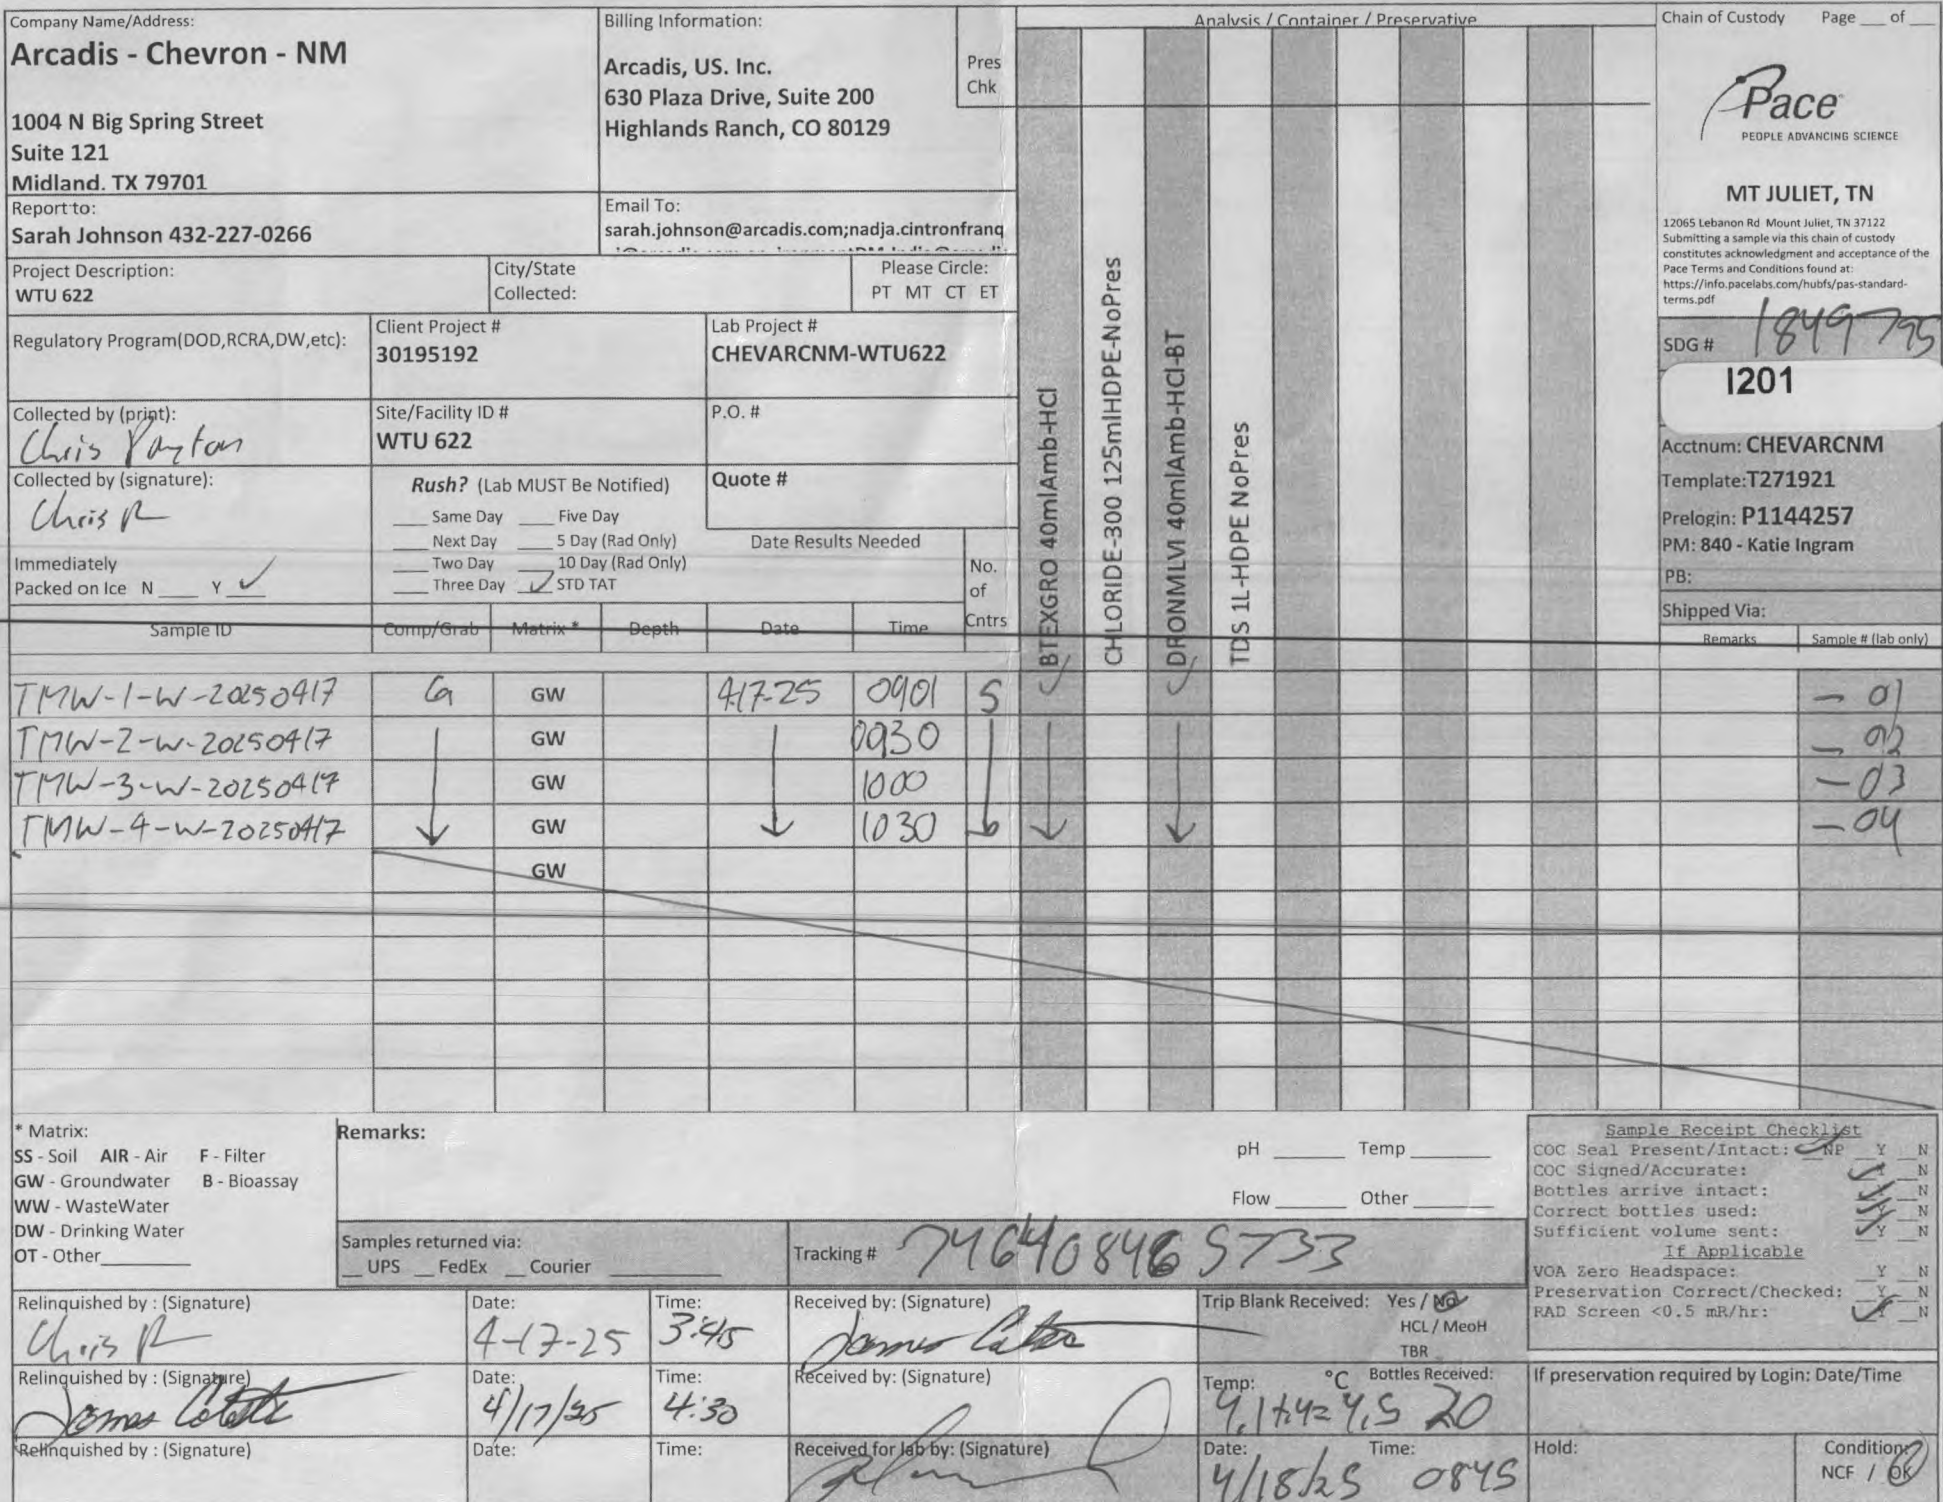 Company Name/Address:
Arcadis - Chevron - NM
1004 N Big Spring Street
Suite 121
Midland. TX 79701
Billing Information:
Arcadis, US. Inc.
630 Plaza Drive, Suite 200
Highlands Ranch, CO 80129
Pres
Chk
Analysis / Container / Preservative
Chain of Custody Page ___ of ___
Pace
PEOPLE ADVANCING SCIENCE
MT JULIET, TN
12065 Lebanon Rd Mount Juliet, TN 37122
Submitting a sample via this chain of custody
constitutes acknowledgment and acceptance of the
Pace Terms and Conditions found at:
https://info.pacelabs.com/hubfs/pas-standard-
terms.pdf
Report to:
Sarah Johnson 432-227-0266
Email To:
sarah.johnson@arcadis.com;nadja.cintronfranq
Project Description:
WTU 622
City/State
Collected:
Please Circle:
PT MT CT ET
Regulatory Program(DOD,RCRA,DW,etc):
Client Project #
30195192
Lab Project #
CHEVARCNM-WTU622
SDG # 1849795
I201
Collected by (print):
Chris Payton
Site/Facility ID #
WTU 622
P.O. #
Acctnum: CHEVARCNM
Template:T271921
Prelogin: P1144257
PM: 840 - Katie Ingram
PB:
Shipped Via:
Collected by (signature):
Chris P
Rush? (Lab MUST Be Notified)
___ Same Day ___ Five Day
___ Next Day ___ 5 Day (Rad Only)
___ Two Day ___ 10 Day (Rad Only)
___ Three Day ✓ STD TAT
Quote #
Date Results Needed
Immediately
Packed on Ice N ___ Y ✓
No.
of
Cntrs
BTEXGRO 40mlAmb-HCl
CHLORIDE-300 125mlHDPE-NoPres
DRONMLVI 40mlAmb-HCl-BT
TDS 1L-HDPE NoPres
Sample ID Comp/Grab Matrix * Depth Date Time Remarks Sample # (lab only)
TMW-1-W-20250417 G GW 4-17-25 0901 5 ✓ ✓ - 01
TMW-2-W-20250417 GW 0930 - 02
TMW-3-W-20250417 GW 1000 - 03
TMW-4-W-20250417 GW 1030 - 04
GW
* Matrix:
SS - Soil AIR - Air F - Filter
GW - Groundwater B - Bioassay
WW - WasteWater
DW - Drinking Water
OT - Other
Remarks:
pH ______ Temp ______
Flow ______ Other ______
Samples returned via:
__ UPS __ FedEx __ Courier
Tracking # 746408465733
Sample Receipt Checklist
COC Seal Present/Intact: NP Y N
COC Signed/Accurate: Y N
Bottles arrive intact: Y N
Correct bottles used: Y N
Sufficient volume sent: Y N
If Applicable
VOA Zero Headspace: Y N
Preservation Correct/Checked: Y N
RAD Screen <0.5 mR/hr: Y N
Relinquished by : (Signature)
Chris P
Date:
4-17-25
Time:
3:45
Received by: (Signature)
James
Trip Blank Received: Yes / No
HCL / MeoH
TBR
Relinquished by : (Signature)
James
Date:
4/17/25
Time:
4:30
Received by: (Signature)
Temp: °C Bottles Received:
4.1+.4=4.5 20
If preservation required by Login: Date/Time
Relinquished by : (Signature)
Date:
Time:
Received for lab by: (Signature)
Date:
4/18/25
Time:
0845
Hold:
Condition:
NCF / OK